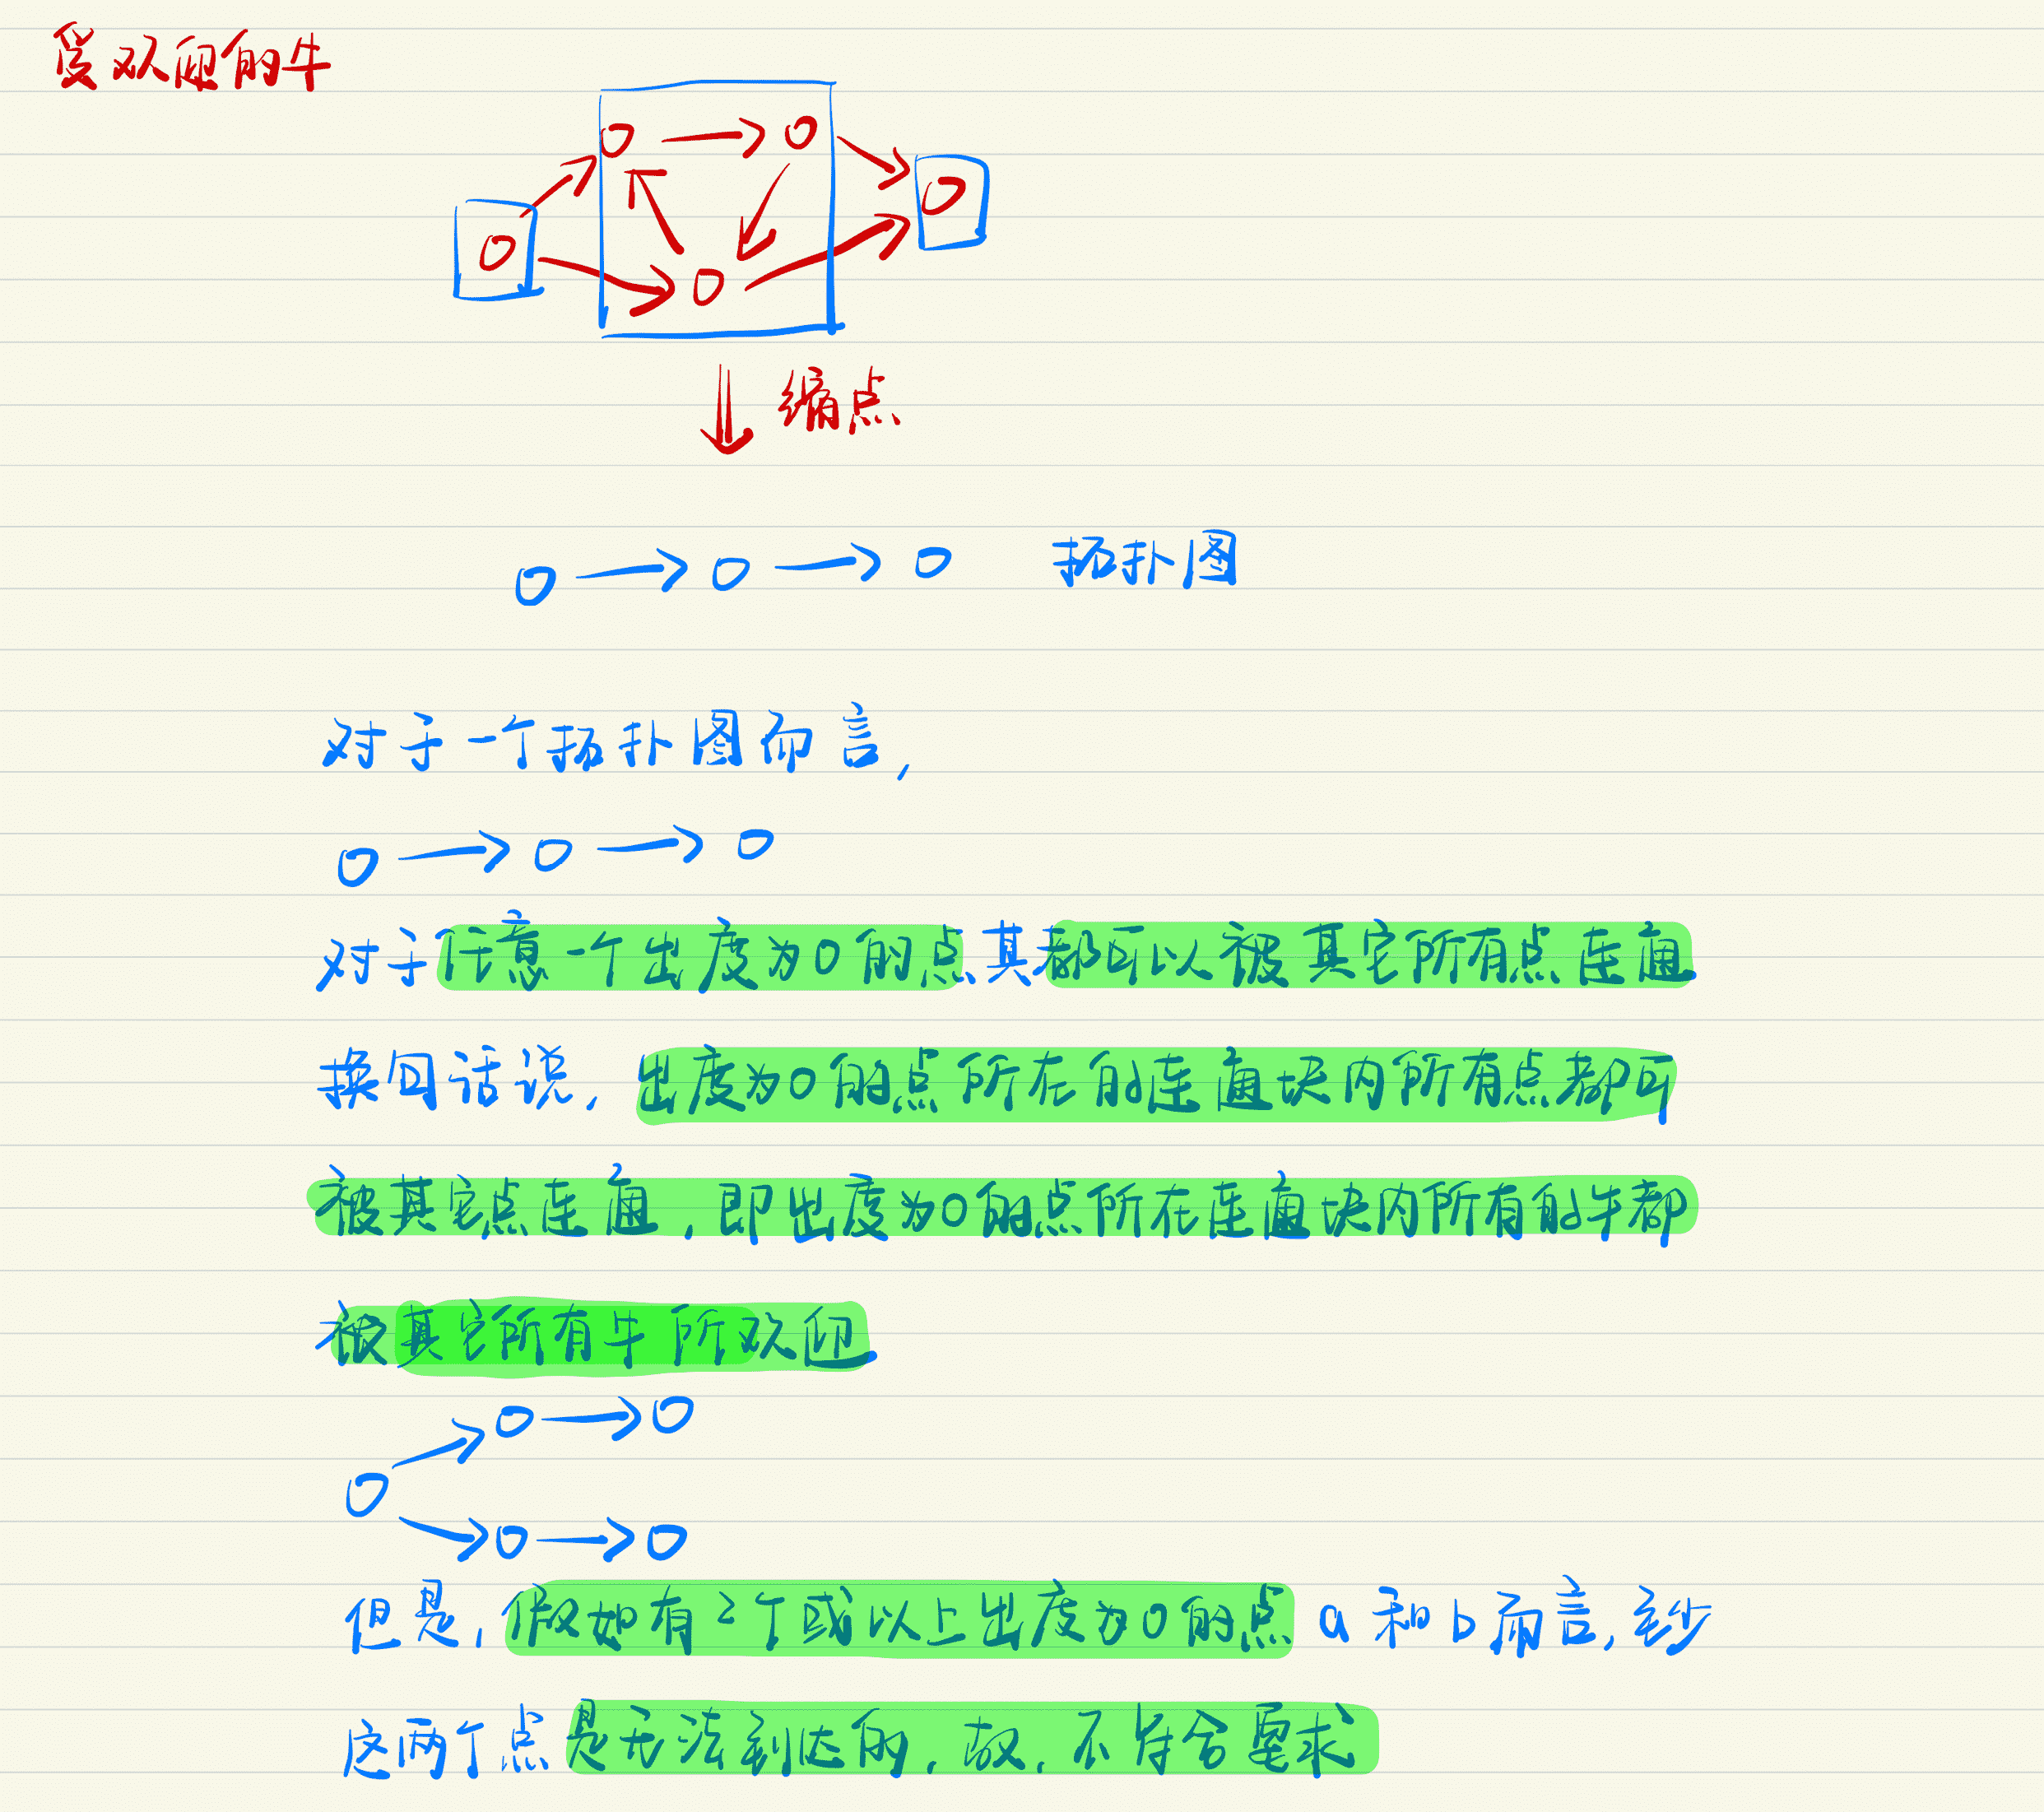 受欢迎的牛
缩点
拓扑图
对于一个拓扑图而言,
对于任意一个出度为0的点其都可以被其它所有点连通
换句话说,出度为0的点所在的连通块内所有点都可
被其它点连通,即出度为0的点所在连通块内所有的牛都
被其它所有牛所欢迎
但是,假如有2个或以上出度为0的点 a和b而言,至少
这两个点是无法到达的,故,不符合要求